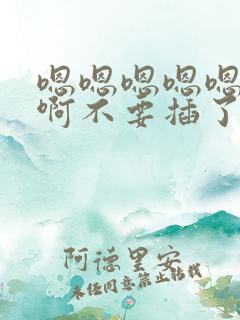 嗯嗯嗯嗯嗯
啊不要插了
阿德里安
未经同意禁止转载